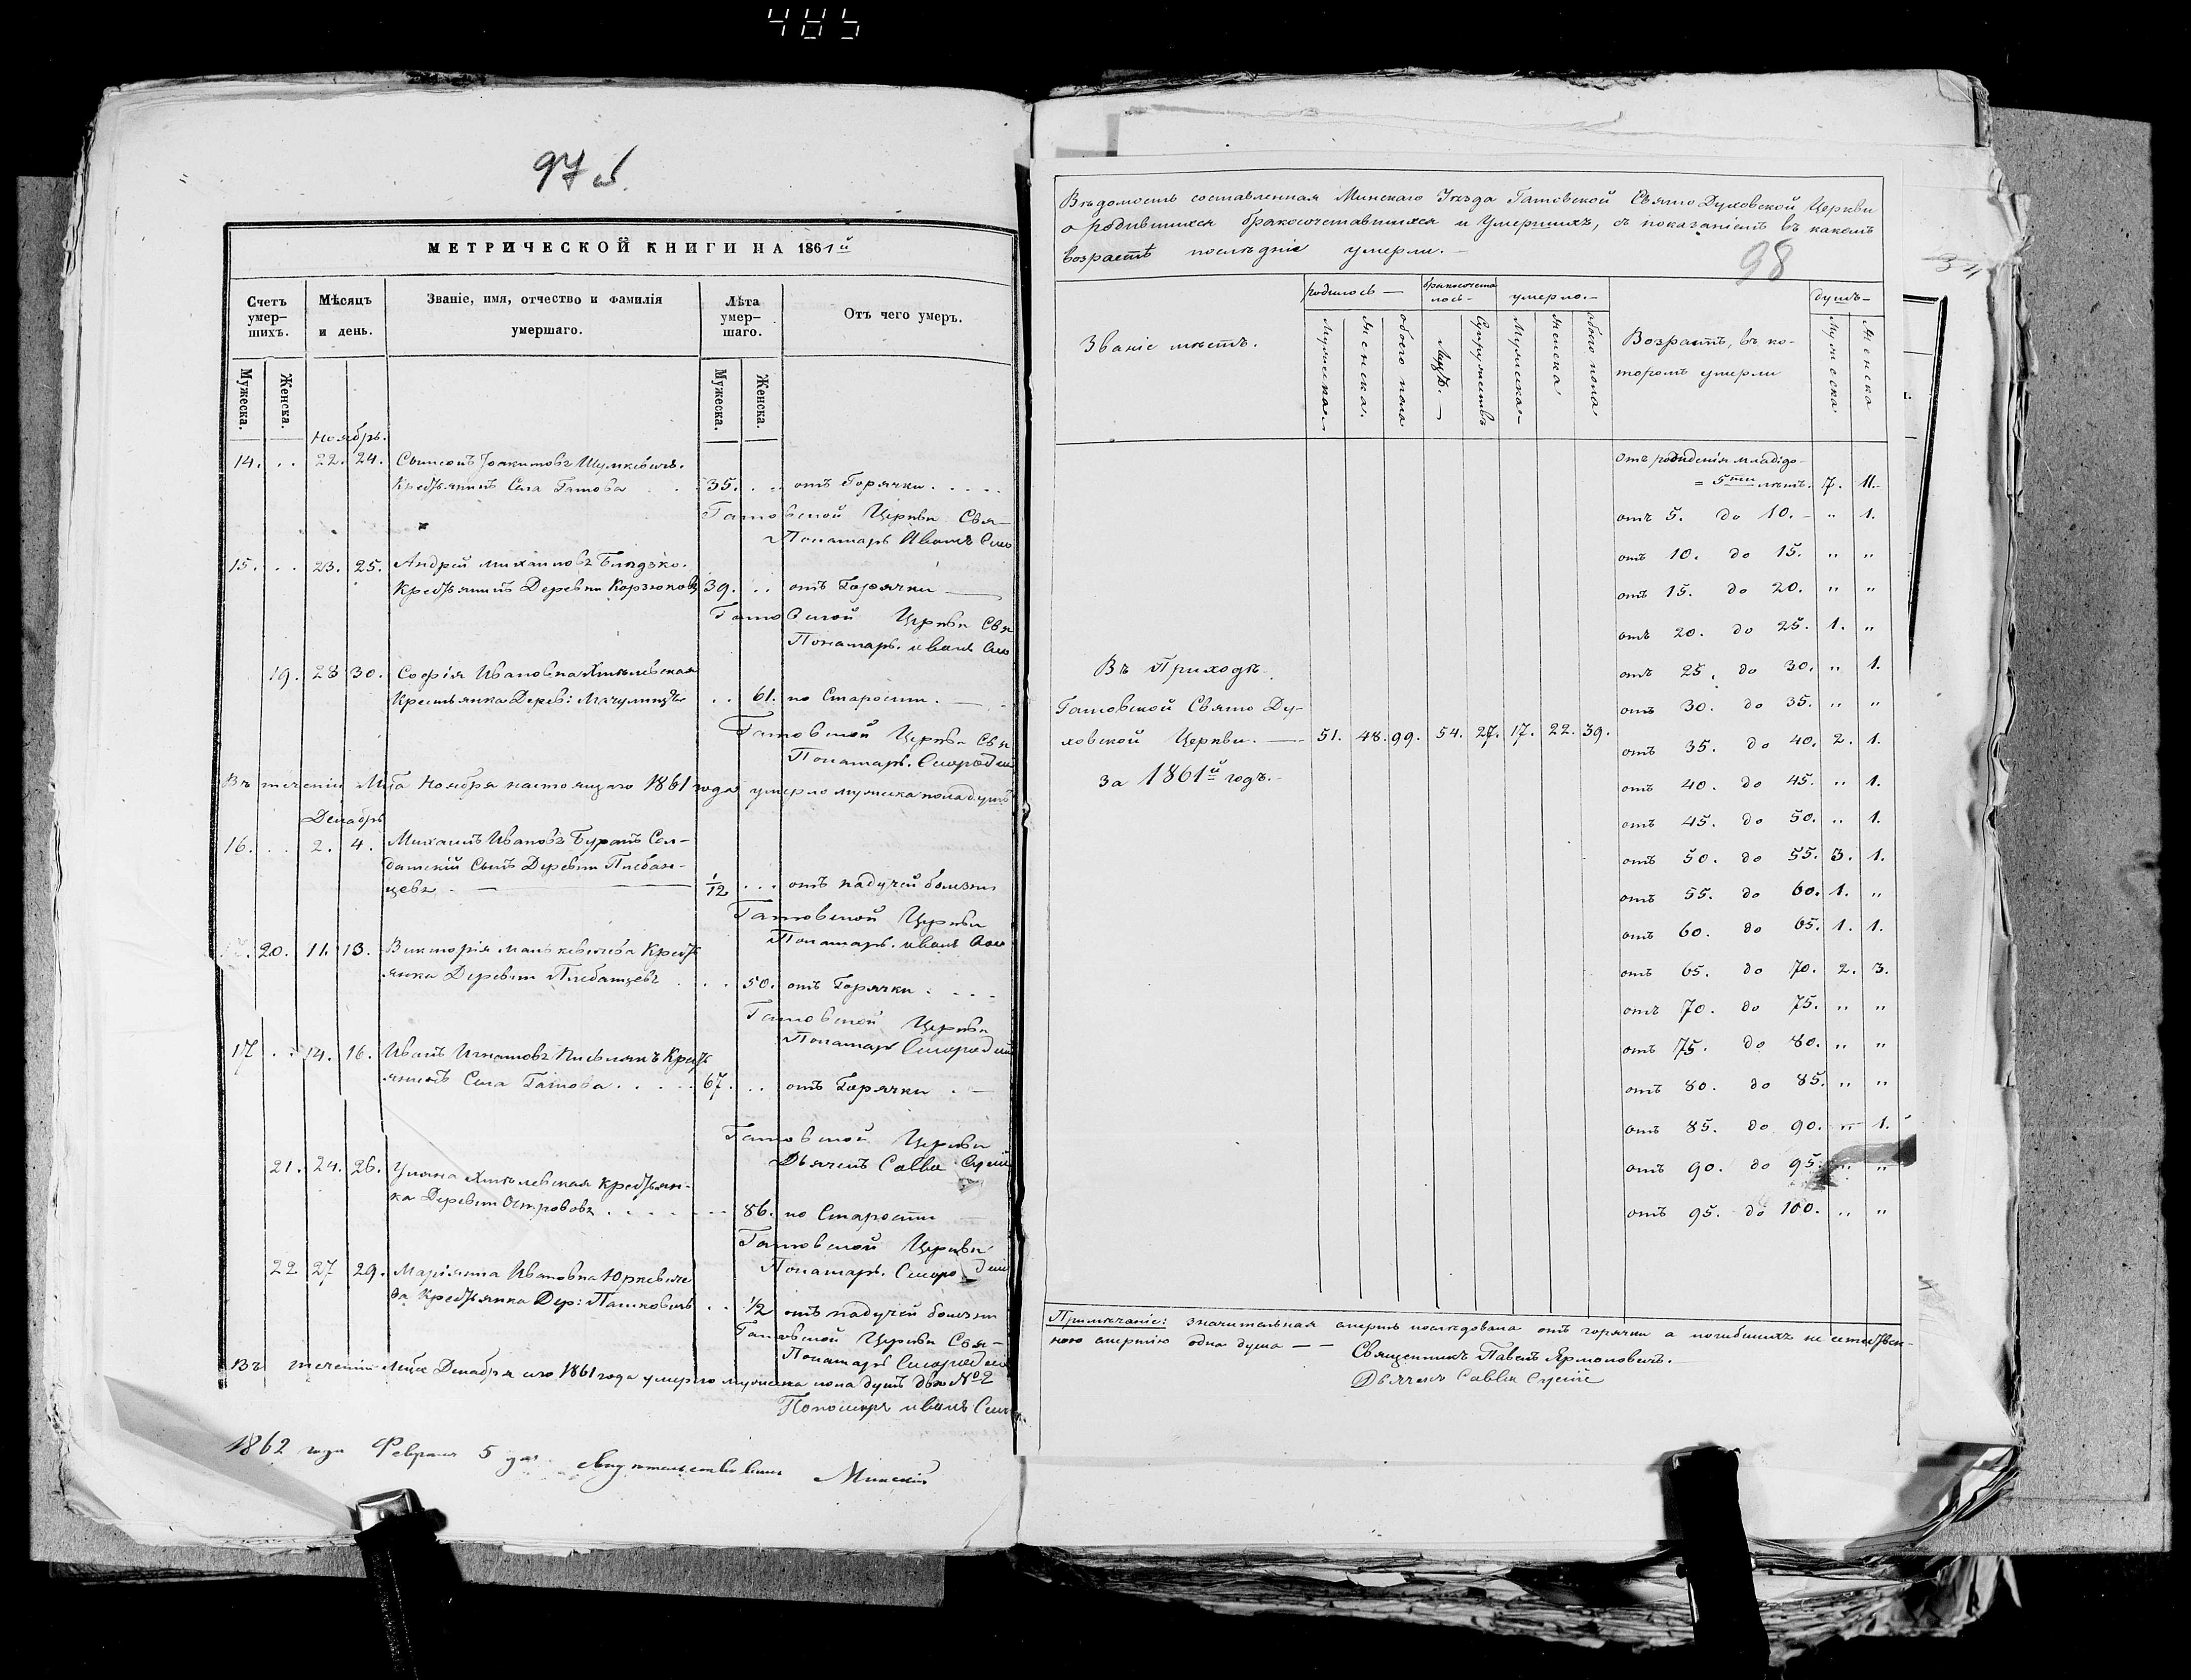 485
97 об.
МЕТРИЧЕСКОЙ КНИГИ НА 1861й
Счетъ умер-шихъ.
Мѣсяцъ и день.
Званіе, имя, отчество и фамилія умершаго.
Лѣта умер-шаго.
Отъ чего умеръ.
Мужеска.
Женска.
Мужеска.
Женска.
Ноябрь.
14. . . 22. 24. Сымеонъ Іоакимовъ Шумкевичъ.
Крестьянинъ Села Гатова . . 35. . . отъ Горячки . . . .
Гатовской Церкви Свя-
Понамарь Иванъ
15. . . 23. 25. Андрей Михаиловъ
Крестьянинъ Деревни Корзюковъ 39. . . отъ Горячки
Гатовской Церкви Свя
Понамарь Иванъ
19. 28 30. Софія Ивановна Хмѣлевская
Крестьянка Дерев: Мачулищъ . . 61. по Старости.
Гатовской Церкви Свя
Понамарь.
Въ теченіи М-ца Ноября настоящаго 1861 года умерло мужеска пола душъ
Декабрь
16. . . 2. 4. Михаилъ Ивановъ Буракъ Сол-
датскій Сынъ Деревни Плебан-
цевъ 1/12 . . . отъ падучей болезни
Гатовской Церкви
Понамарь. Иванъ
20. 11. 13. Викторія Крестъ
янка Деревни Плебанцевъ . . . 50. отъ Горячки . . . .
Гатовской Церкви
Понамарь
17 . . 14. 16. Иванъ Игнатовъ Крестъ
янинъ Села Гатова . . . . . 67. . . отъ Горячки . —
Гатовской Церкви
Дьячекъ Савва
21. 24. 26. Уляна Хмѣлевская крестьян-
ка Деревни Острововъ . . . . 86. по Старости
Гатовской Церкви
Понамарь.
22 27 29. Маріянна Ивановна Юркевиче-
ва Крестьянка Дер: Пашковичъ . . 1/2 отъ падучей болезни
Гатовской Церкви Свя-
Понамарь
Въ теченіи М-ца Декабря сего 1861 года умерло мужеска пола душъ двѣ № 2
Понамарь Иванъ
1862 года Февраля 5 дня свидетельствовалъ Минскій
Вѣдомость составленная Минскаго Уѣзда Гатовской Свято Духовской Церкви
о родившихся бракосочетавшихся и Умершихъ, съ показаніемъ въ какомъ
возрастѣ послѣдніе умерли. —
98
Званіе мѣстъ.
родилось —
бракосочета лось-
умерло. —
Возрастъ, въ ко-
торомъ умерли
душъ —
Мужеска.
Женска.
обоего пола
Лицъ. —
Супружествъ
Мужеска —
Женска
обоего пола
Мужеска
Женска
Отъ рожденія младідо-
= 5ти лѣтъ. 7. 11.
отъ 5. до 10. — „ 1.
отъ 10. до 15. „ „
отъ 15. до 20. „ „
отъ 20. до 25. 1. „
Въ Приходѣ.
отъ 25. до 30. „ 1.
Гатовской Свято Ду-
отъ 30. до 35. „ „
ховской Церкви. — 51. 48. 99. 54. 27. 17. 22. 39.
отъ 35. до 40. 2. 1.
за 1861й годъ. —
отъ 40. до 45. „ 1.
отъ 45. до 50. „ 1.
отъ 50. до 55. 3. 1.
отъ 55. до 60. 1. „
отъ 60. до 65. 1. 1.
отъ 65. до 70. 2. 3.
отъ 70. до 75. „ „
отъ 75. до 80. „ „
отъ 80. до 85. „ „
отъ 85. до 90. „ 1.
отъ 90. до 95. „ „
отъ 95. до 100. „ „
Примѣчаніе: значительная смерть последовала отъ горячки а погибшихъ не естествен-
ною смертію одна душа — — Священникъ Павелъ Ярмоловичъ. —
Дьячекъ Савва